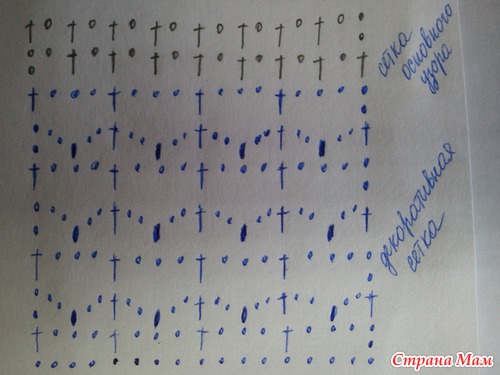 сетка
основного
узора
декоративная
сетка
Страна Мам